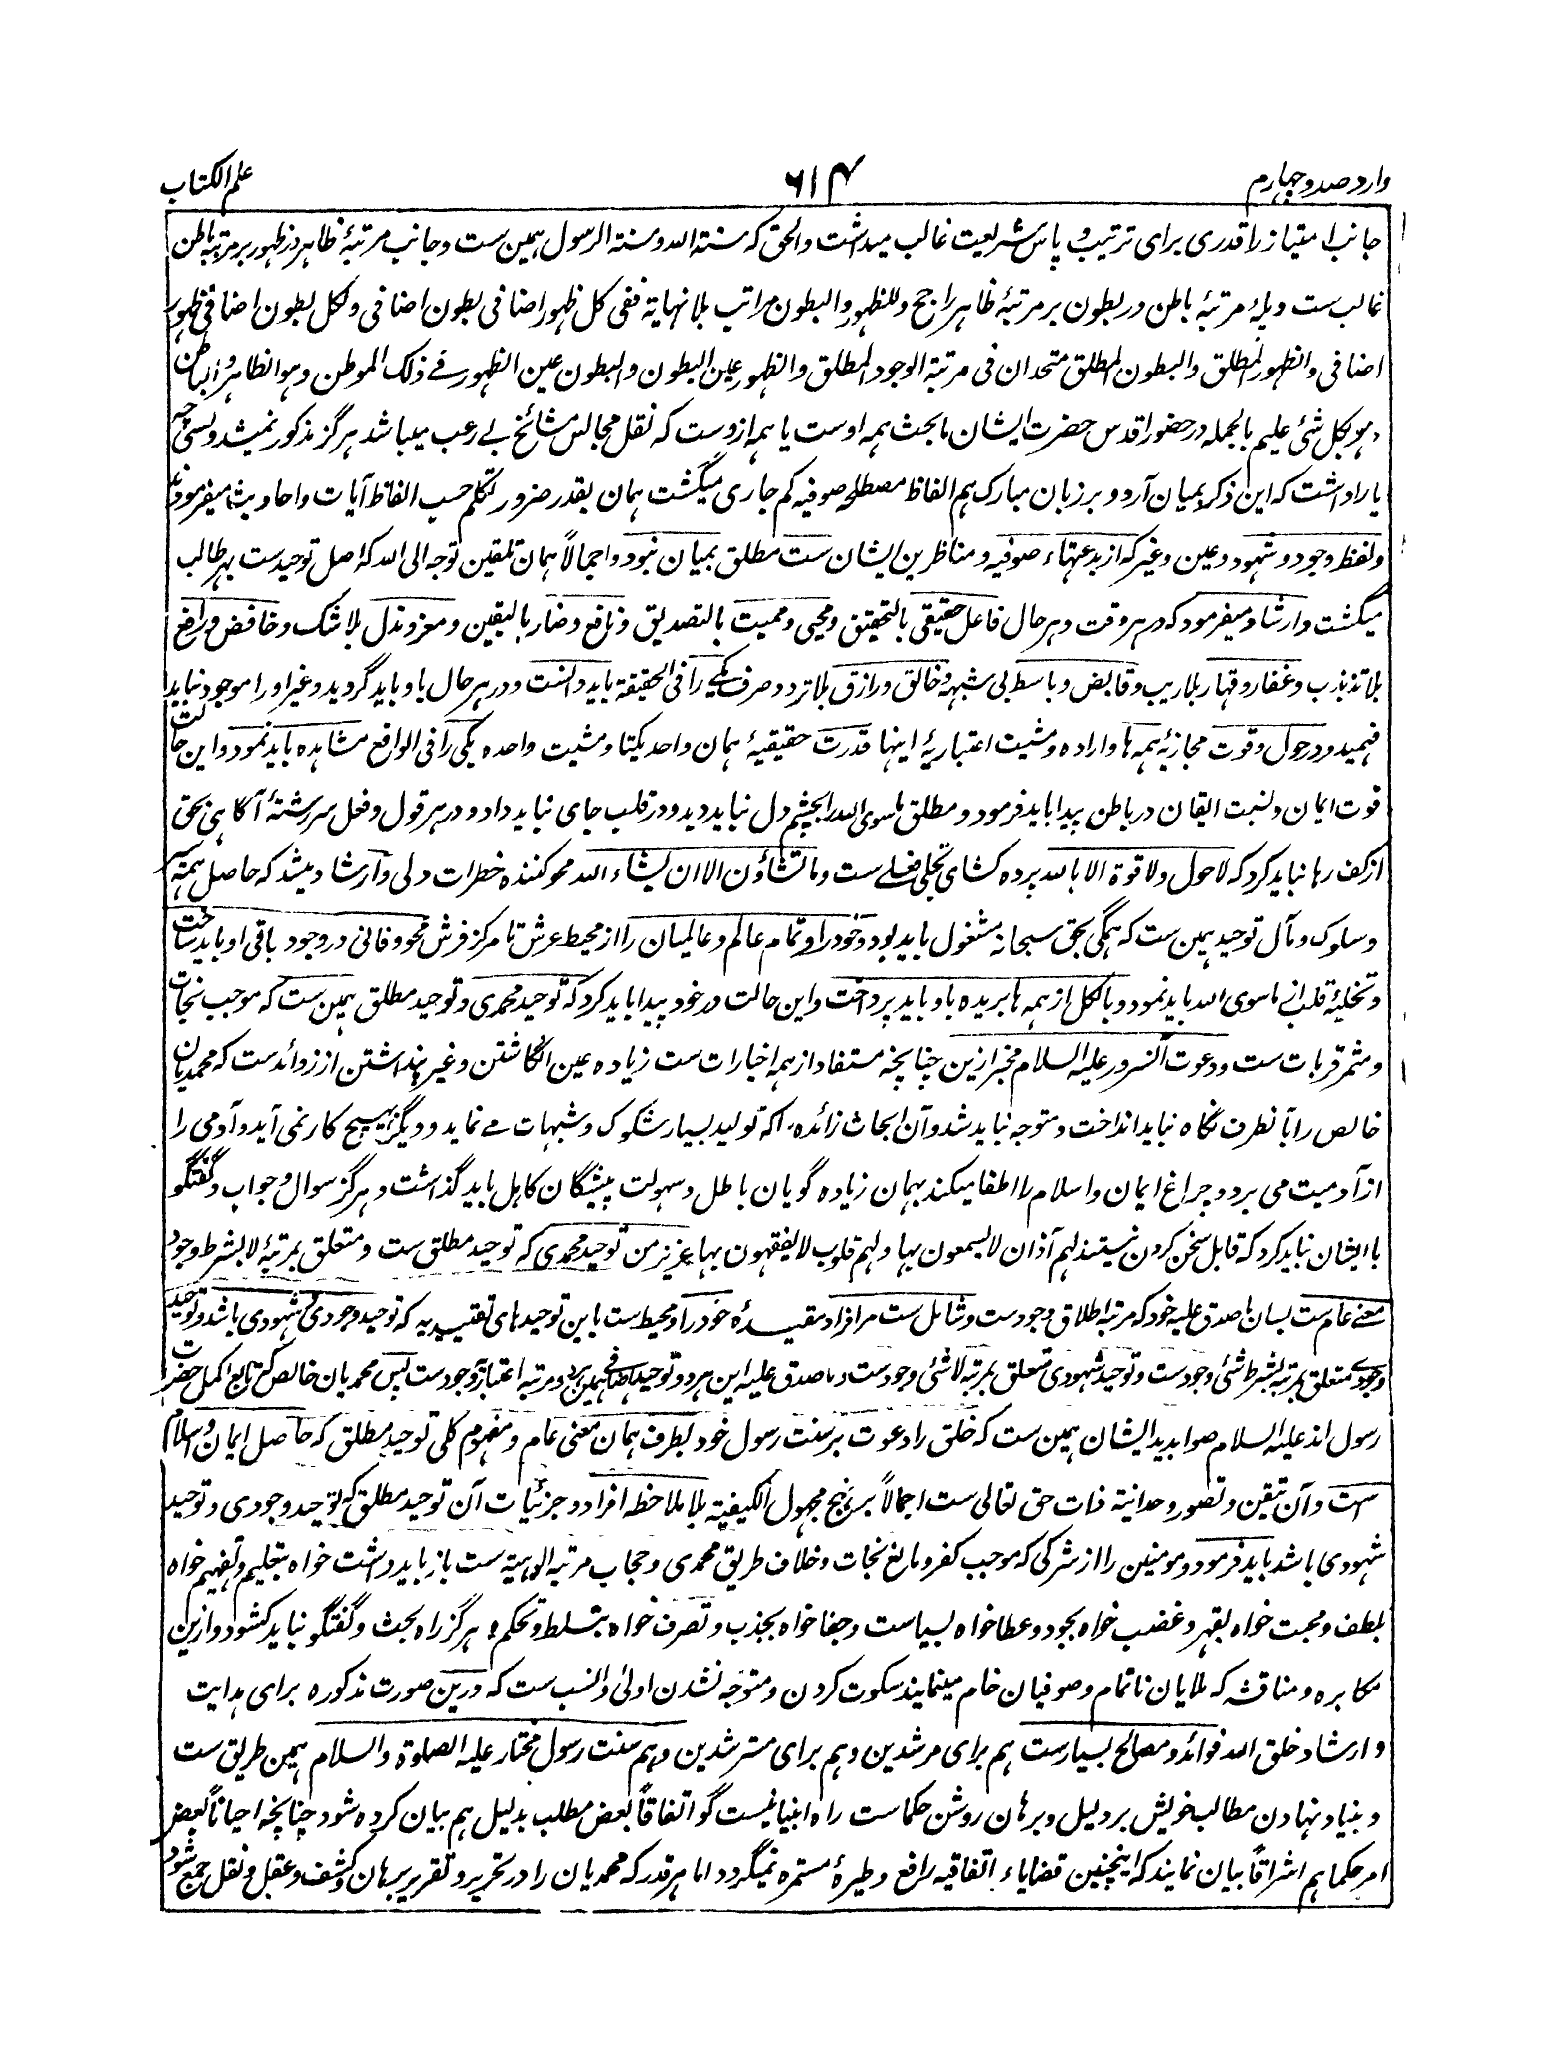 وارد صد و چهارم
۶۱۴
علم الکتاب
جانب امتیاز را قدری برای ترتیب و پاس شریعت غالب میداشت والحق که سنته الله و سنته الرسول همین ست و جانب مرتبهٔ ظاهر در ظهور بر مرتبه باطن
غالب ست و پلهٔ مرتبهٔ باطن در بطون بر مرتبهٔ ظاهر راجح وللظهور والبطون مراتب بلانهایة ففی کل ظهور اضافی بطون اضافی ولکل بطون اضافی ظهور
اضافی والظهور المطلق والبطون المطلق متحدان فی مرتبة الوجود المطلق والظهور عین البطون والبطون عین الظهور فے ذلک الموطن وهو الظاهر والباطن
وهو بکل شئ علیم بالجمله در حضور اقدس حضرت ایشان ما بحث همه اوست یا همه ازوست که نقل مجالس مشائخ بے رعب میباشد هرگز مذکور نمیشد و کسی چه
یارا داشت که این ذکر بمیان آرد و بر زبان مبارک هم الفاظ مصطلحه صوفیه کم جاری میگشت همان بقدر ضرور تکلم حسب الفاظ آیات و احادیث میفرمودند
و لفظ وجود و شهود و عین و غیر که از بدعتهاء صوفیه و مناظرین ایشان ست مطلق بمیان نبود و اجمالاً همان تلقین توجه الی الله که اصل توحیدست بهر طالب
میگشت و ارشاد میفرمود که در هر وقت و هر حال فاعل حقیقی بالتحقیق و محیی و ممیت بالتصدیق و نافع و ضار بالیقین و معز و مذل بلاشک و خافض و رافع
بلا تذبذب و غفار و قهار بلاریب و قابض و باسط بی شبهه و خالق و رازق بلا تردد صرف یکے را فی الحقیقة باید دانست و در هر حال باو باید گروید و غیر او را موجود نباید
فهمید و در حول و قوت مجازیهٔ همه ها و اراده و مشیت اعتباریهٔ اینها قدرت حقیقیهٔ همان واحد یکتا و مشیت واحده یکی را فی الواقع مشاهده باید نمود و این حالت
قوت ایمان و نسبت ایقان در باطن پیدا باید فرمود و مطلق ماسوی الله را بچشم دل نباید دید و در قلب جای نباید داد و در هر قول و فعل سررشتهٔ آگاهی بحق
از کف رها نباید کرد که لا حول ولا قوة الا بالله پرده کشای تجلی فعلے ست وما تشاؤن الا ان یشاء الله محو کننده خطرات دلی و ارشاد میشد که حاصل همه
و سلوک و مآل توحید همین ست که همگی بحق سبحانه مشغول باید بود و خود را و تمام عالم و عالمیان را از محیط عرش تا مرکز فرش محو و فانی در وجود باقی او باید ساخت
و تخلیهٔ قلب از ماسوی الله باید نمود و بالکل از همه ها بریده باو باید پرداخت و این حالت در خود پیدا باید کرد که توحید محمدی و توحید مطلق همین ست که موجب نجات
و مثمر قربات ست و دعوت آنسرور علیه السلام مخبر ازین چنانچه مستفاد از همه اخبارات ست زیاده عین انگاشتن و غیر پنداشتن از زوائد ست که محمدیان
خالص را بآنطرف نگاه نباید انداخت و متوجه نباید شد و آن ابحاث زائده را که تولید بسیار شکوک و شبهات مے نماید و دیگر هیچ کار نمی آید و آدمی را
از آدمیت می برد و چراغ ایمان و اسلام را اطفا میکند بهمان زیاده گویان باطل و سهولت پیشگان کاهل باید گذاشت و هرگز سوال و جواب و گفتگو
با ایشان نباید کرد که قابل سخن کردن نیستند لهم آذان لا یسمعون بها ولهم قلوب لا یفقهون بها عزیز من توحید محمدی که توحید مطلق ست و متعلق بمرتبهٔ لا بشرط وجود
معنے عام ست بسان ما صدق علیه خود که مرتبه اطلاق وجودست و شامل ست مر افراد مقیدهٔ خود را و محیط ست باین توحیدهای تقییدیه که توحید وجودی و شهودی باشد و توحید
وجودے متعلق بمرتبه بشرط شئ وجودست و توحید شهودی متعلق بمرتبه لاشئ وجودست و ماصدق علیه این هر دو توحید اضافے همین هر دو مرتبه اعتباریه وجودست پس محمدیان خالص که تابع اکمل حضرت
رسول اند علیه السلام صوابدید ایشان همین ست که خلق را دعوت بر سنت رسول خود بطرف همان معنی عام و مفهوم کلی توحید مطلق که حاصل ایمان و اسلام
ست و آن تیقن و تصور وحدانیة ذات حق تعالی ست اجمالاً بر نهج مجهول الکیفیة بلا ملاحظه افراد و جزئیات آن توحید مطلق که توحید وجودی و توحید
شهودی باشد باید فرمود و مومنین را از شرکی که موجب کفر و مانع نجات و خلاف طریق محمدی و حجاب مرتبه الوهیة ست باز باید داشت خواه بتعلیم و تفهیم خواه
بلطف و محبت خواه بقهر و غضب خواه بجود و عطا خواه بسیاست و جفا خواه بجذب و تصرف خواه بتسلط و تحکم و هرگز راه بحث و گفتگو نباید کشود و ازین
مکابره و مناقشه که ملایان ناتمام و صوفیان خام مینمایند سکوت کردن و متوجه نشدن اولیٰ و انسب ست که درین صورت مذکوره برای هدایت
و ارشاد خلق الله فوائد و مصالح بسیارست هم برای مرشدین و هم برای مسترشدین و هم سنت رسول مختار علیه الصلوة والسلام همین طریق ست
و بنیاد نهادن مطالب خویش بر دلیل و برهان روشن حکماست راه انبیا نیست گو اتفاقاً بعض مطلب بدلیل هم بیان کرده شود چنانچه احیاناً بعض
امر حکما هم اشراقاً بیان نمایند که اینچنین قضایاء اتفاقیه رافع وطیرهٔ مستمره نمیگردد اما هر قدر که محمدیان را در تحریر و تقریر برهان و کشف و عقل و نقل جمع شود